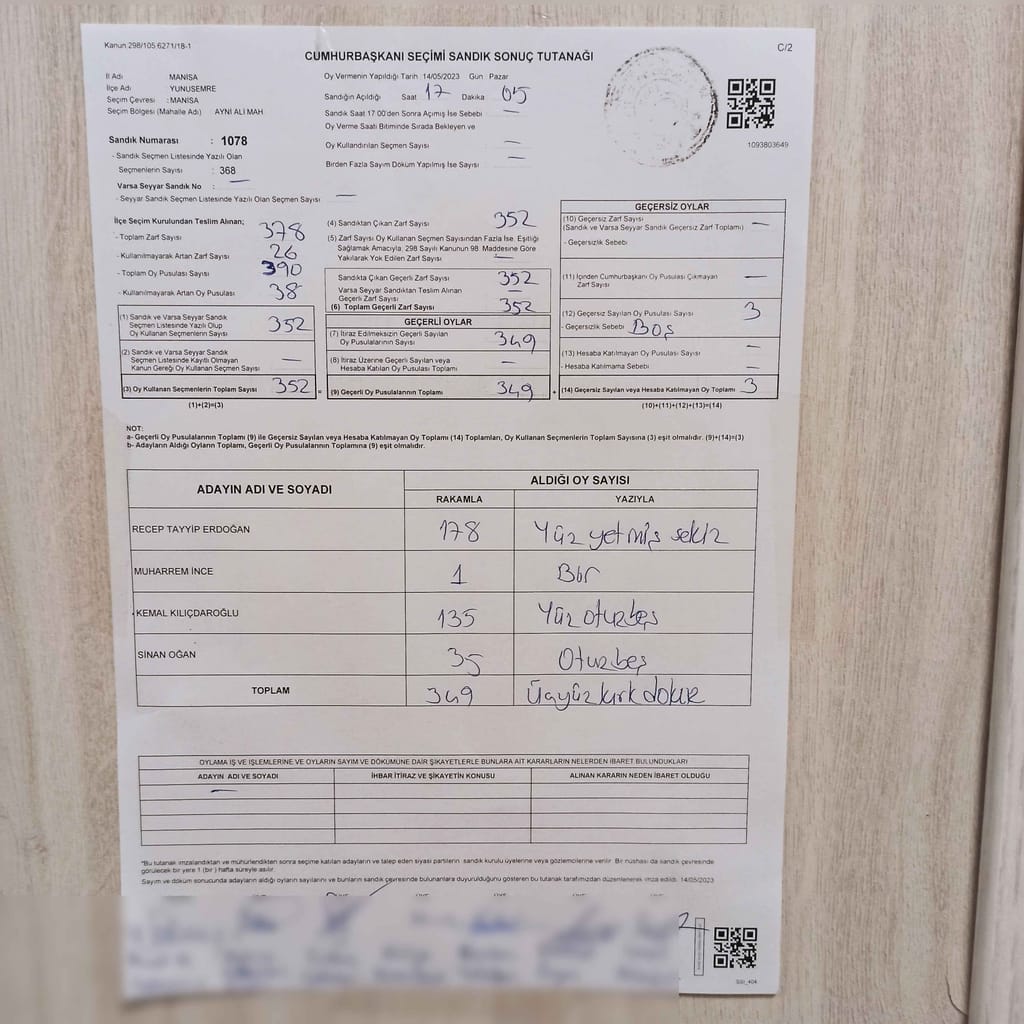 Kanun 298/105,6271/18-1
C/2
CUMHURBAŞKANI SEÇİMİ SANDIK SONUÇ TUTANAĞI
İl Adı MANİSA
İlçe Adı YUNUSEMRE
Seçim Çevresi : MANİSA
Seçim Bölgesi (Mahalle Adı) AYNİ ALİ MAH
Oy Vermenin Yapıldığı Tarih : 14/05/2023 Gün : Pazar
Sandığın Açıldığı Saat 17 Dakika 05
Sandık Saat 17 00'den Sonra Açımış İse Sebebi —
Oy Verme Saati Bitiminde Sırada Bekleyen ve
Oy Kullandırılan Seçmen Sayısı —
Birden Fazla Sayım Döküm Yapılmış İse Sayısı —
1093803649
Sandık Numarası : 1078
- Sandık Seçmen Listesinde Yazılı Olan
Seçmenlerin Sayısı : 368
Varsa Seyyar Sandık No : —
- Seyyar Sandık Seçmen Listesinde Yazılı Olan Seçmen Sayısı —
İlçe Seçim Kurulundan Teslim Alınan;
- Toplam Zarf Sayısı 378
- Kullanılmayarak Artan Zarf Sayısı 26
- Toplam Oy Pusulası Sayısı 390
- Kullanılmayarak Artan Oy Pusulası 38
(1) Sandık ve Varsa Seyyar Sandık
Seçmen Listesinde Yazılı Olup
Oy Kullanan Seçmenlerin Sayısı 352
(2) Sandık ve Varsa Seyyar Sandık
Seçmen Listesinde Kayıtlı Olmayan
Kanun Gereği Oy Kullanan Seçmen Sayısı —
(3) Oy Kullanan Seçmenlerin Toplam Sayısı 352 =
(1)+(2)=(3)
(4) Sandıktan Çıkan Zarf Sayısı 352
(5) Zarf Sayısı Oy Kullanan Seçmen Sayısından Fazla İse, Eşitliği
Sağlamak Amacıyla, 298 Sayılı Kanunun 98. Maddesine Göre
Yakılarak Yok Edilen Zarf Sayısı —
Sandıkta Çıkan Geçerli Zarf Sayısı 352
Varsa Seyyar Sandıktan Teslim Alınan
Geçerli Zarf Sayısı —
(6) Toplam Geçerli Zarf Sayısı 352
GEÇERLİ OYLAR
(7) İtiraz Edilmeksizin Geçerli Sayılan
Oy Pusulalarının Sayısı 349
(8) İtiraz Üzerine Geçerli Sayılan veya
Hesaba Katılan Oy Pusulası Toplamı —
(9) Geçerli Oy Pusulalarının Toplamı 349 +
GEÇERSİZ OYLAR
(10) Geçersiz Zarf Sayısı
(Sandık ve Varsa Seyyar Sandık Geçersiz Zarf Toplamı) —
- Geçersizlik Sebebi
(11) İçinden Cumhurbaşkanı Oy Pusulası Çıkmayan
Zarf Sayısı —
(12) Geçersiz Sayılan Oy Pusulası Sayısı 3
- Geçersizlik Sebebi Boş
(13) Hesaba Katılmayan Oy Pusulası Sayısı —
- Hesaba Katılmama Sebebi —
(14) Geçersiz Sayılan veya Hesaba Katılmayan Oy Toplamı 3
(10)+(11)+(12)+(13)=(14)
NOT:
a- Geçerli Oy Pusulalarının Toplamı (9) ile Geçersiz Sayılan veya Hesaba Katılmayan Oy Toplamı (14) Toplamları, Oy Kullanan Seçmenlerin Toplam Sayısına (3) eşit olmalıdır. (9)+(14)=(3)
b- Adayların Aldığı Oyların Toplamı, Geçerli Oy Pusulalarının Toplamına (9) eşit olmalıdır.
ADAYIN ADI VE SOYADI
ALDIĞI OY SAYISI
RAKAMLA YAZIYLA
RECEP TAYYİP ERDOĞAN 178 Yüz yetmiş sekiz
MUHARREM İNCE 1 Bir
KEMAL KILIÇDAROĞLU 135 Yüz otuzbeş
SİNAN OĞAN 35 Otuzbeş
TOPLAM 349 Üçyüz kırk dokuz
OYLAMA İŞ VE İŞLEMLERİNE VE OYLARIN SAYIM VE DÖKÜMÜNE DAİR ŞİKAYETLERLE BUNLARA AİT KARARLARIN NELERDEN İBARET BULUNDUKLARI
ADAYIN ADI VE SOYADI İHBAR İTİRAZ VE ŞİKAYETİN KONUSU ALINAN KARARIN NEDEN İBARET OLDUĞU
—
*Bu tutanak imzalandıktan ve mühürlendikten sonra seçime katılan adayların ve talep eden siyasi partilerin sandık kurulu üyelerine veya gözlemcilerine verilir. Bir nüshası da sandık çevresinde
görülecek bir yere 1 (bir) hafta süreyle asılır.
Sayım ve döküm sonucunda adayların aldığı oyların sayılarını ve bunların sandık çevresinde bulunanlara duyurulduğunu gösteren bu tutanak tarafımızdan düzenlenerek imza edildi. 14/05/2023
2
SSI_404